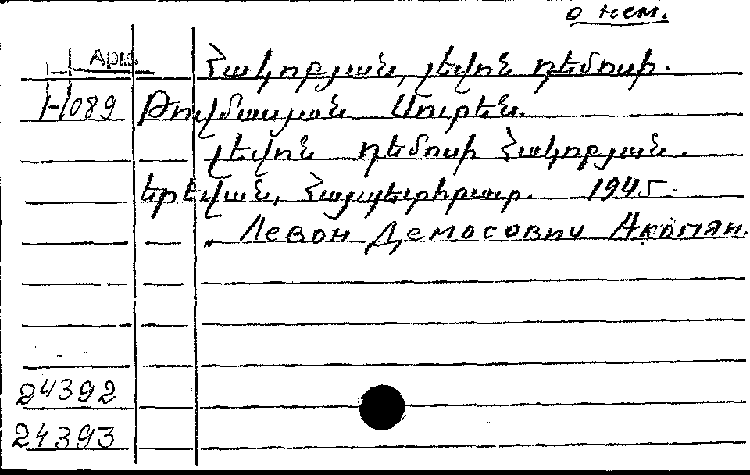 о нем.
Арм.
Հակոբյան, Լեվոն Դեմոսի.
1089 Թովմասյան Սուրեն.
Լեվոն Դեմոսի Հակոբյան.
Երեվան, Հայպետհրատ. 1945.
Левон Демосович Акопян.
24392
24393